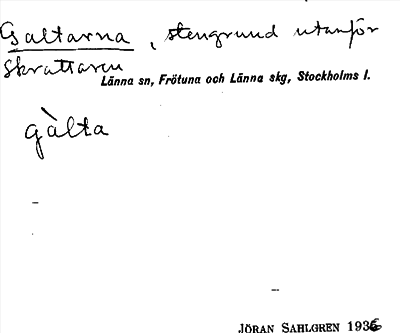 Galtarna, stengrund utanför
Skrattaren
Länna sn, Frötuna och Länna skg, Stockholms l.
gàlta
JÖRAN SAHLGREN 1936